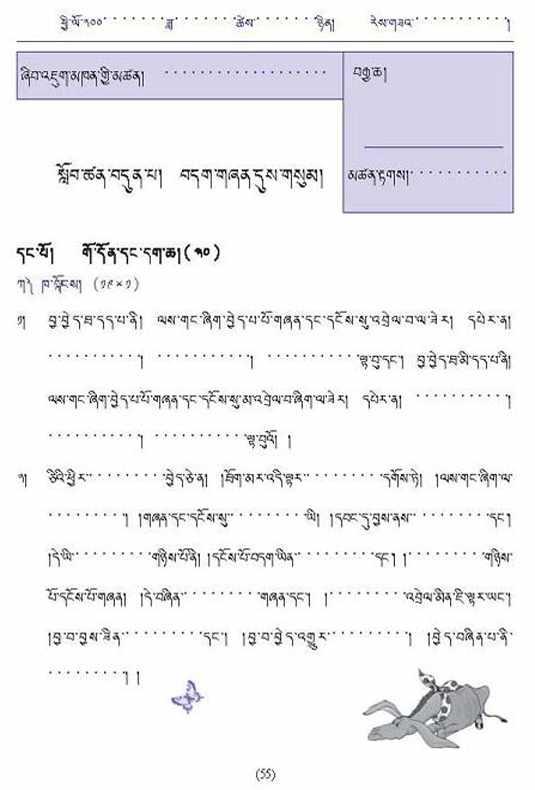 སྤྱི་ལོ་༢༠༠་་་་་་་་་ཟླ་་་་་་་་་ཚེས་་་་་་་་་ཉིན། རེས་གཟའ་་་་་་་་་་་་་།
ཞིབ་འཇུག་མཁན་གྱི་མཚན། ་་་་་་་་་་་་་་་་་་་
བཀྱ་ཆ།
སློབ་ཚན་བདུན་པ། བདག་གཞན་དུས་གསུམ།
མཚན་རྟགས།་་་་་་་་་་་་
དང་པོ། གོ་དོན་དང་དག་ཆ། (༣༠)
ཀ༽ ཁ་སྐོངས། (༡༩×༡)
༡། བྱ་བྱེད་ཐ་དད་པ་ནི། ལས་གང་ཞིག་བྱེད་པ་པོ་གཞན་དང་དངོས་སུ་འབྲེལ་བ་ལ་ཟེར། དཔེར་ན།
་་་་་་་་་་་། ་་་་་་་་་་་། ་་་་་་་་་་་ལྟ་བུ་དང་། བྱ་བྱེད་ཐ་མི་དད་པ་ནི།
ལས་གང་ཞིག་བྱེད་པ་པོ་གཞན་དང་དངོས་སུ་མ་འབྲེལ་བ་ཞིག་ལ་ཟེར། དཔེར་ན། ་་་་་་་་་་་།
་་་་་་་་་་་། ་་་་་་་་་་་ལྟ་བུའོ། །
༢། ཅིའི་ཕྱིར་་་་་་་་་་བྱེད་ཅེ་ན། །ཐོག་མར་འདི་ལྟར་་་་་་་་་་དགོས་ཏེ། །ལས་གང་ཞིག་ལ་
་་་་་་་་་། །གཞན་དང་དངོས་སུ་་་་་་་་་་ཡི། །དབང་དུ་བྱས་ནས་་་་་་་་་་དང་།
།དེ་ཡི་་་་་་་་་་གཉིས་པོ་ནི། །དངོས་པོ་བདག་ཡིན་་་་་་་་་་དང་། །་་་་་་་་་གཉིས་
པོ་དངོས་པོ་གཞན། །དེ་བཞིན་་་་་་་་་་གཞན་དང་། །་་་་་་་་་འབྲེལ་མིན་ཇི་ལྟར་ཡང་།
།བྱ་བ་བྱས་ཟིན་་་་་་་་་་དང་། །བྱ་བ་བྱེད་འགྱུར་་་་་་་་་་། །བྱེད་བཞིན་པ་ནི་
་་་་་་་་་། །
(55)